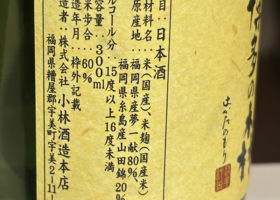 博多の森
はかたのもり
目：日本酒
材料名：米（国産）、米麹（国産米）
原産地：福岡県産夢一献80%、
福岡県糸島産山田錦20%
ルコール分：15度以上16度未満
容量：300ml
米歩合：60%
造年月：枠外記載
造者：株式会社 小林酒造本店
福岡県糟屋郡宇美町宇美2-11-